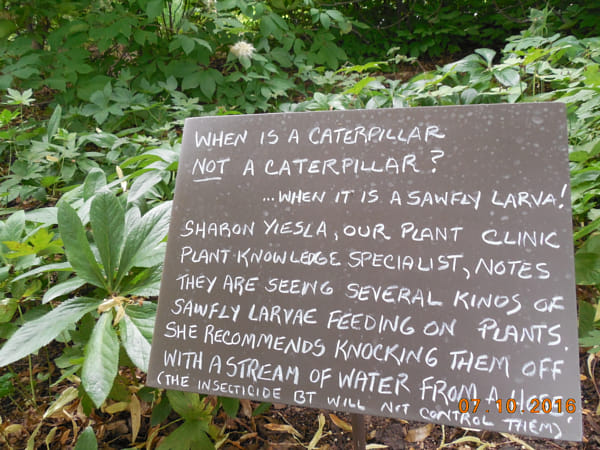 WHEN IS A CATERPILLAR
NOT A CATERPILLAR?
...WHEN IT IS A SAWFLY LARVA!
SHARON YIESLA, OUR PLANT CLINIC
PLANT KNOWLEDGE SPECIALIST, NOTES
THEY ARE SEEING SEVERAL KINDS OF
SAWFLY LARVAE FEEDING ON PLANTS.
SHE RECOMMENDS KNOCKING THEM OFF
WITH A STREAM OF WATER FROM A
(THE INSECTICIDE BT WILL NOT CONTROL THEM)
07.10.2016